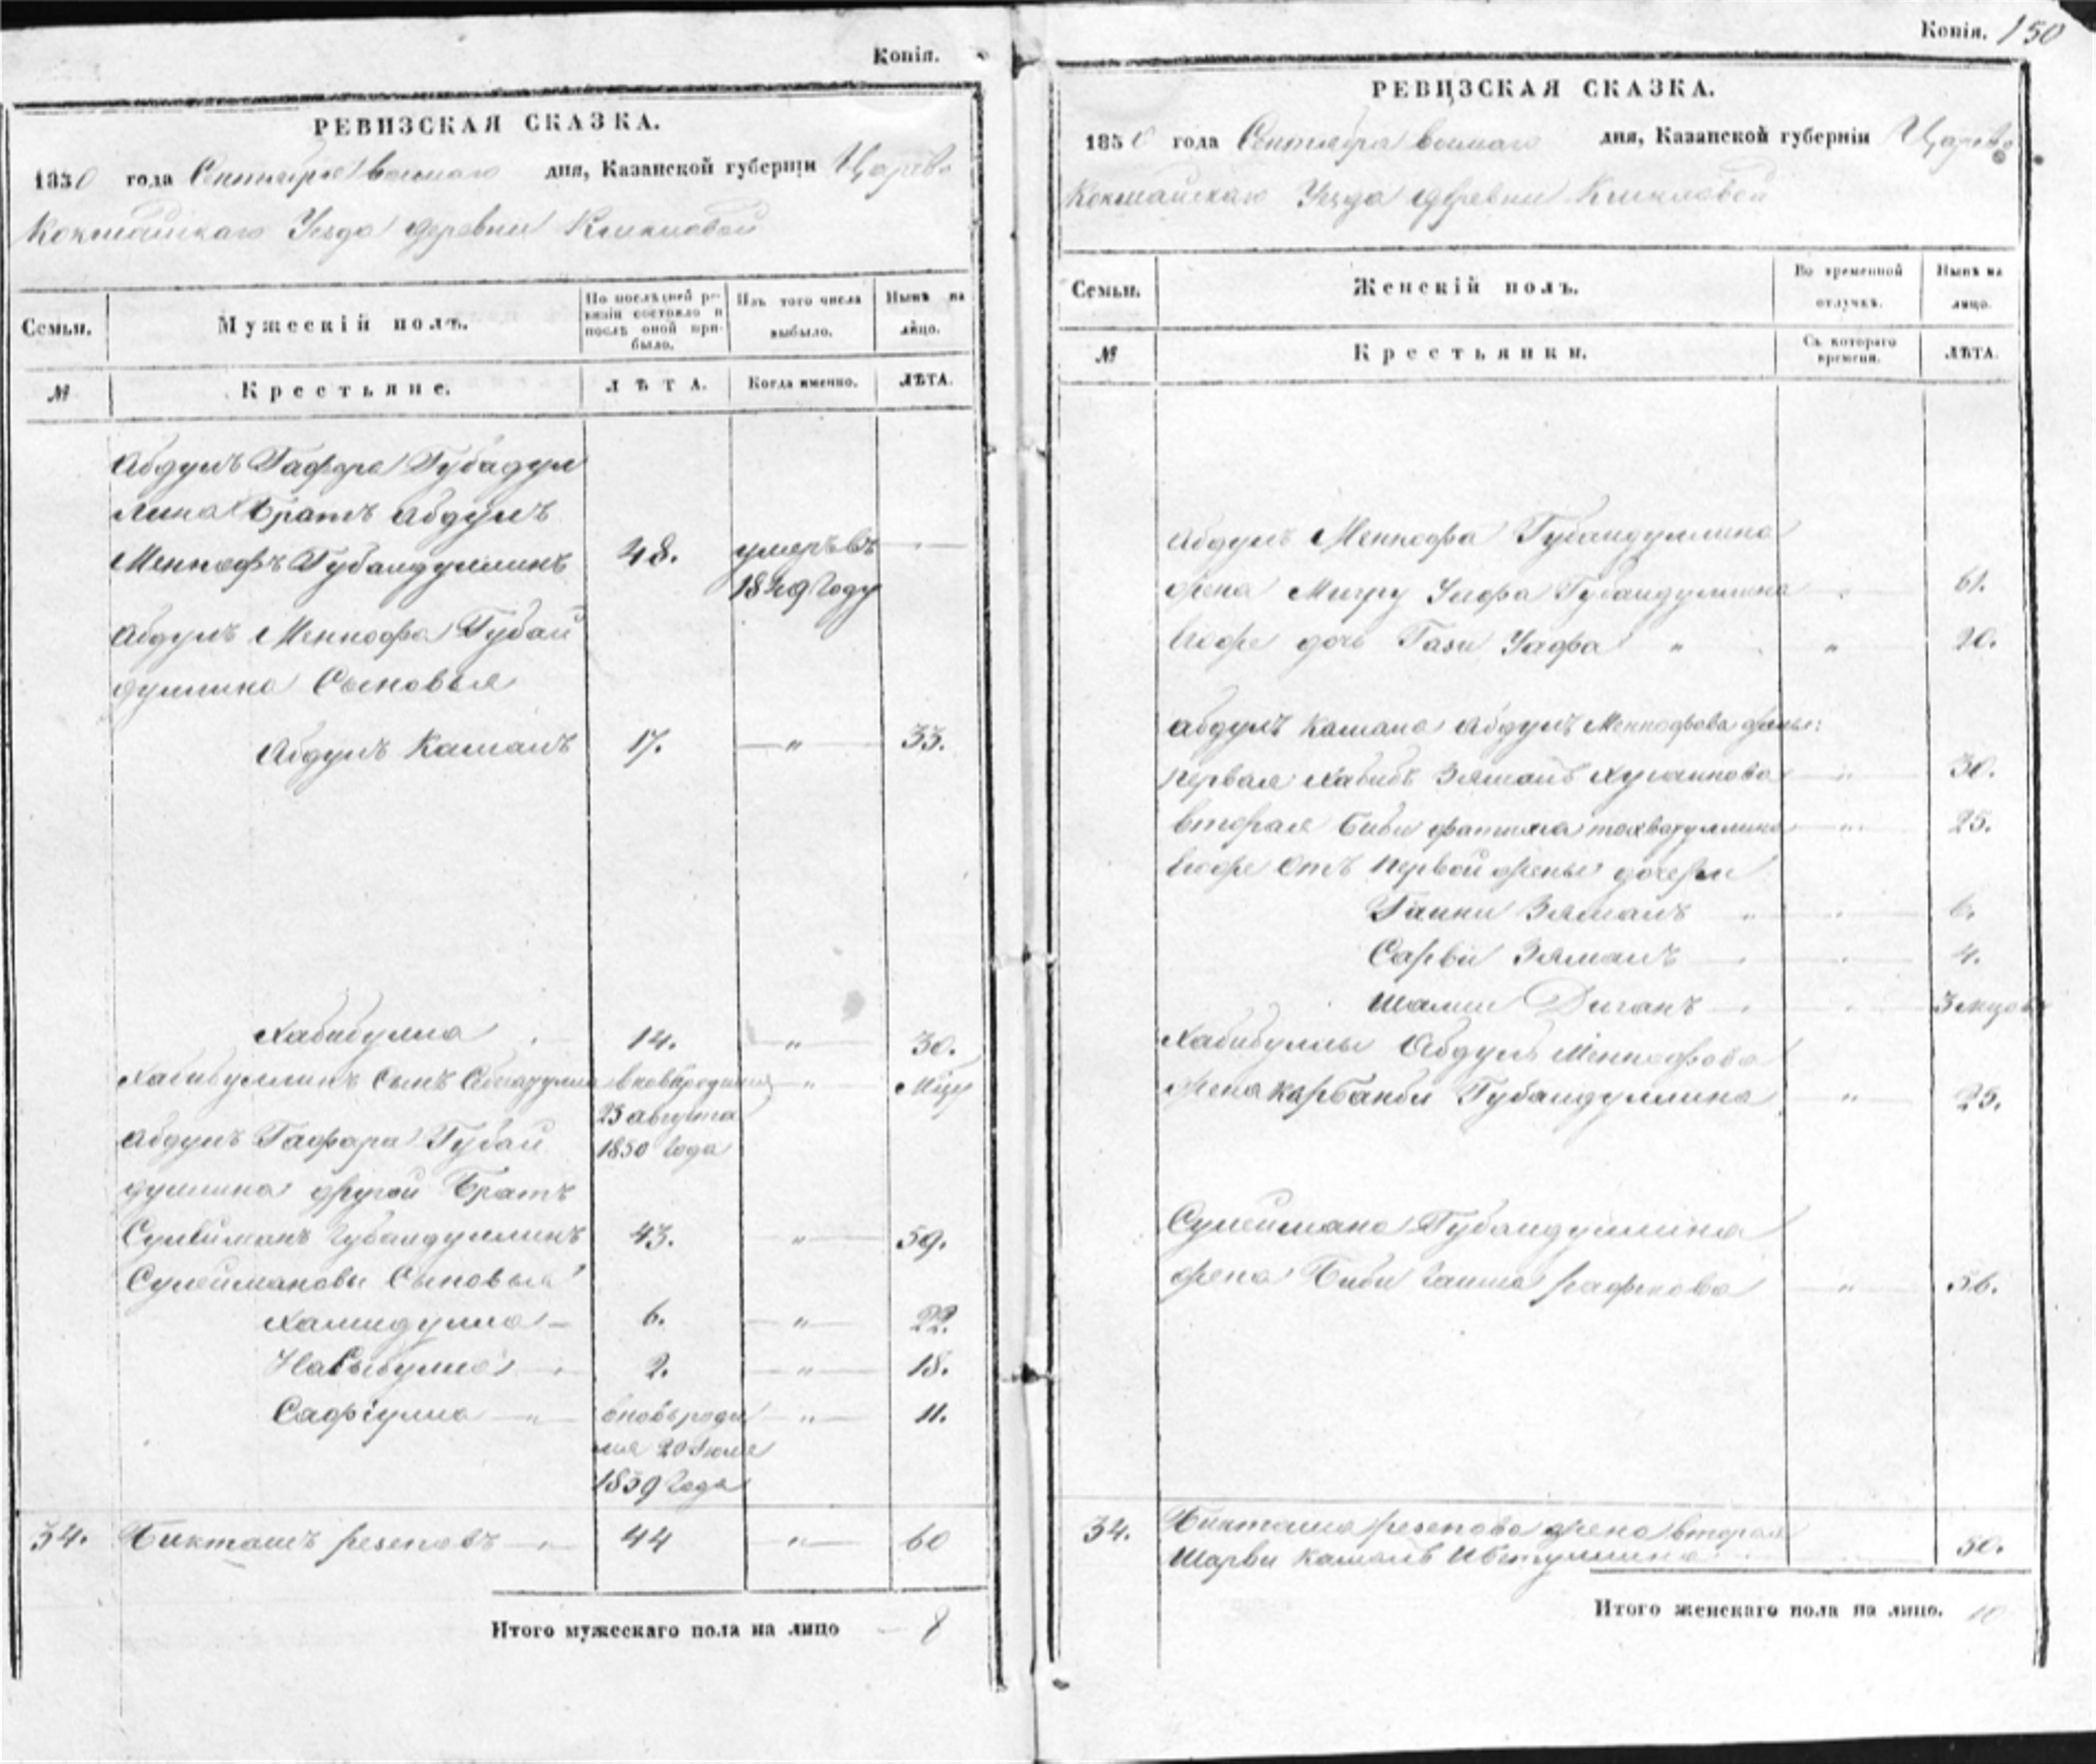 Копія.
РЕВИЗСКАЯ СКАЗКА.
1850 года Сентября восмаго дня, Казанской губерніи Царево
Кокшайскаго Уезда деревни
Семьи.
Мужескій полъ.
По послѣдней ре-
визіи состояло и
послѣ оной при-
было.
Изъ того числа
выбыло.
Нынѣ на
лицо.
№
Крестьяне.
ЛѢТА.
Когда именно.
ЛѢТА.
Абдулъ Гафара Губадул
лина братъ Абдулъ
Меннафъ Губайдуллинъ 48. умеръ въ —
1849 году
Абдулъ Меннафа Губай
дуллина Сыновья
Абдулъ Камалъ 17. — " — 33.
Хабибулла 14. " 30.
Хабибуллинъ Сынъ вновь родился "
23 августа
Абдулъ Гафара Губай 1850 года
дуллина другой братъ
Сулейманъ Губайдуллинъ 43. " 59.
Сулеймановы Сыновья
Хамидулла 6. " 22.
2. " 18.
Сафіулла " вновь роди " 11.
лся 20 Іюля
1839 года
34. Бикташъ Резеповъ 44 " 60
Итого мужескаго пола на лицо 8
Копія. 150
РЕВИЗСКАЯ СКАЗКА.
1850 года Сентября восмаго дня, Казанской губерніи Царево
Кокшайскаго Уезда деревни
Семьи.
Женскій полъ.
Во временной
отлучкѣ.
Нынѣ на
лицо.
№
Крестьянки.
Съ котораго
времени.
ЛѢТА.
Абдулъ Меннафа Губайдуллина
жена Губайдуллина 61.
Егоже дочь Гази " " 20.
Абдулъ Камала Абдулъ Меннафова жены:
первая Хабибъ Зямалъ " 30.
вторая Биби фатима " 25.
Егоже Отъ первой жены дочери
Зямалъ " 6.
Сарви Зямалъ 4.
Шамси
Хабибуллы Абдулъ Меннафова
жена Губайдуллина " 25.
Сулеймана Губайдуллина
жена Биби " 56.
34. Бикташа Резепова жена вторая
Шарви Камалъ 50.
Итого женскаго пола на лицо. 10